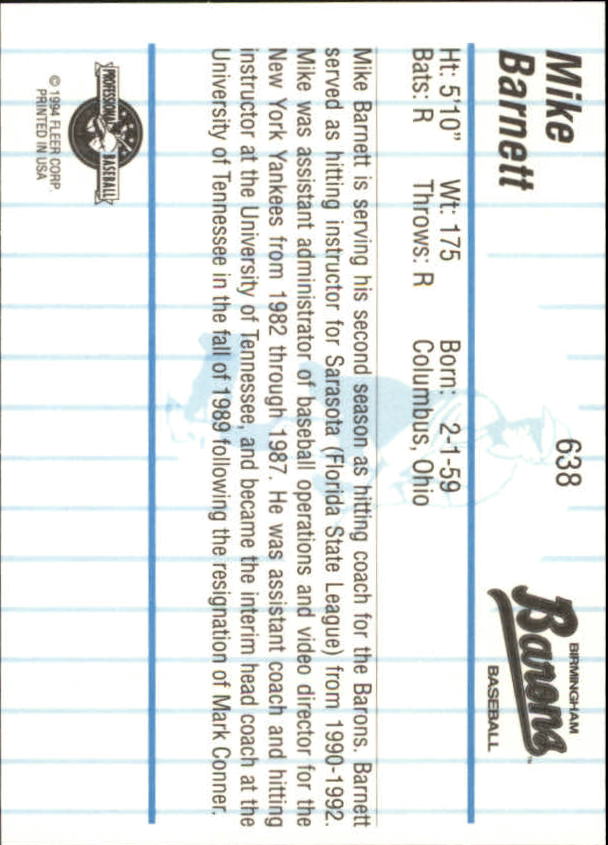 Mike
Barnett
638
BIRMINGHAM
Barons
BASEBALL
Ht: 5'10" Wt: 175 Born: 2-1-59
Bats: R Throws: R Columbus, Ohio
Mike Barnett is serving his second season as hitting coach for the Barons. Barnett
served as hitting instructor for Sarasota (Florida State League) from 1990-1992.
Mike was assistant administrator of baseball operations and video director for the
New York Yankees from 1982 through 1987. He was assistant coach and hitting
instructor at the University of Tennessee, and became the interim head coach at the
University of Tennessee in the fall of 1989 following the resignation of Mark Conner.
PROFESSIONAL
BASEBALL
© 1994 FLEER CORP.
PRINTED IN USA